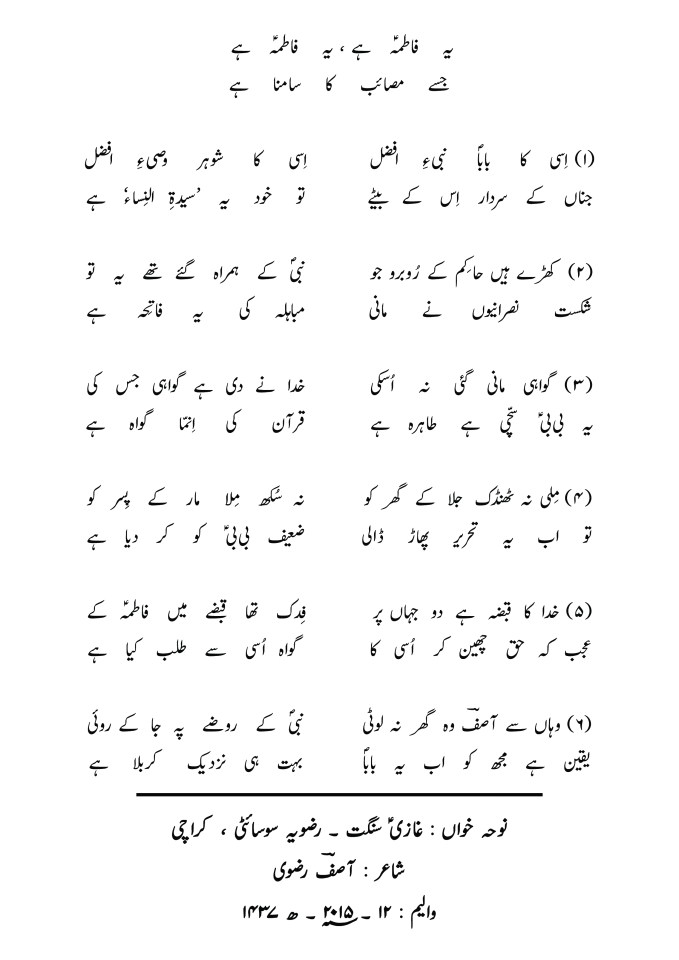 یہ فاطمہؑ ہے ، یہ فاطمہؑ ہے
جسے مصائب کا سامنا ہے
(۱) اِسی کا باباؐ نبیءِ افضل اِسی کا شوہر وصیءِ افضل
جناں کے سردار اِس کے بیٹے تو خود یہ ’سیدۃِ النِساء‘ ہے
(۲) کھڑے ہیں حاکِم کے رُوبرو جو نبیؐ کے ہمراہ گئے تھے یہ تو
شکست نصرانیوں نے مانی مباہلہ کی یہ فاتحہ ہے
(۳) گواہی مانی گئی نہ اُسکی خدا نے دی ہے گواہی جس کی
یہ بی بیؑ سچّی ہے طاہرہ ہے قرآن کی اِنمّا گواہ ہے
(۴) مِلی نہ ٹھنڈک جلا کے گھر کو نہ سُکھ مِلا مار کے پِسر کو
تو اب یہ تحریر پھاڑ ڈالی ضعیف بی بیؑ کو کر دیا ہے
(۵) خدا کا قبضہ ہے دو جہاں پر فِدک تھا قبضے میں فاطمہؑ کے
عجب کہ حق چھین کر اُسی کا گواہ اُسی سے طلب کیا ہے
(۶) وہاں سے آصفؔ وہ گھر نہ لوٹی نبیؐ کے روضے پہ جا کے روئی
یقین ہے مجھ کو اب یہ باباؐ بہت ہی نزدیک کربلا ہے
نوحہ خواں : غازیؑ سنگت ۔ رضویہ سوسائٹی ، کراچی
شاعر : آصفؔ رضوی
والیم : ۱۲ ۔ ۲۰۱۵؁ ۔ ھ ۱۴۳۷